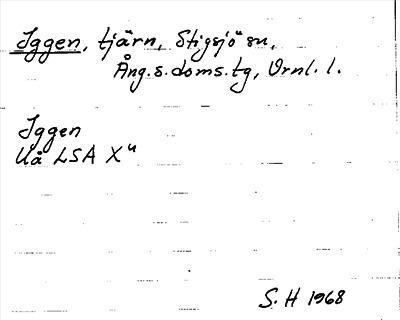 Iggen, tjärn, Stigsjö sn,
Ång. s. doms. tg, Vrnl. l.
Iggen
Uå LSA Xu
S. H 1968